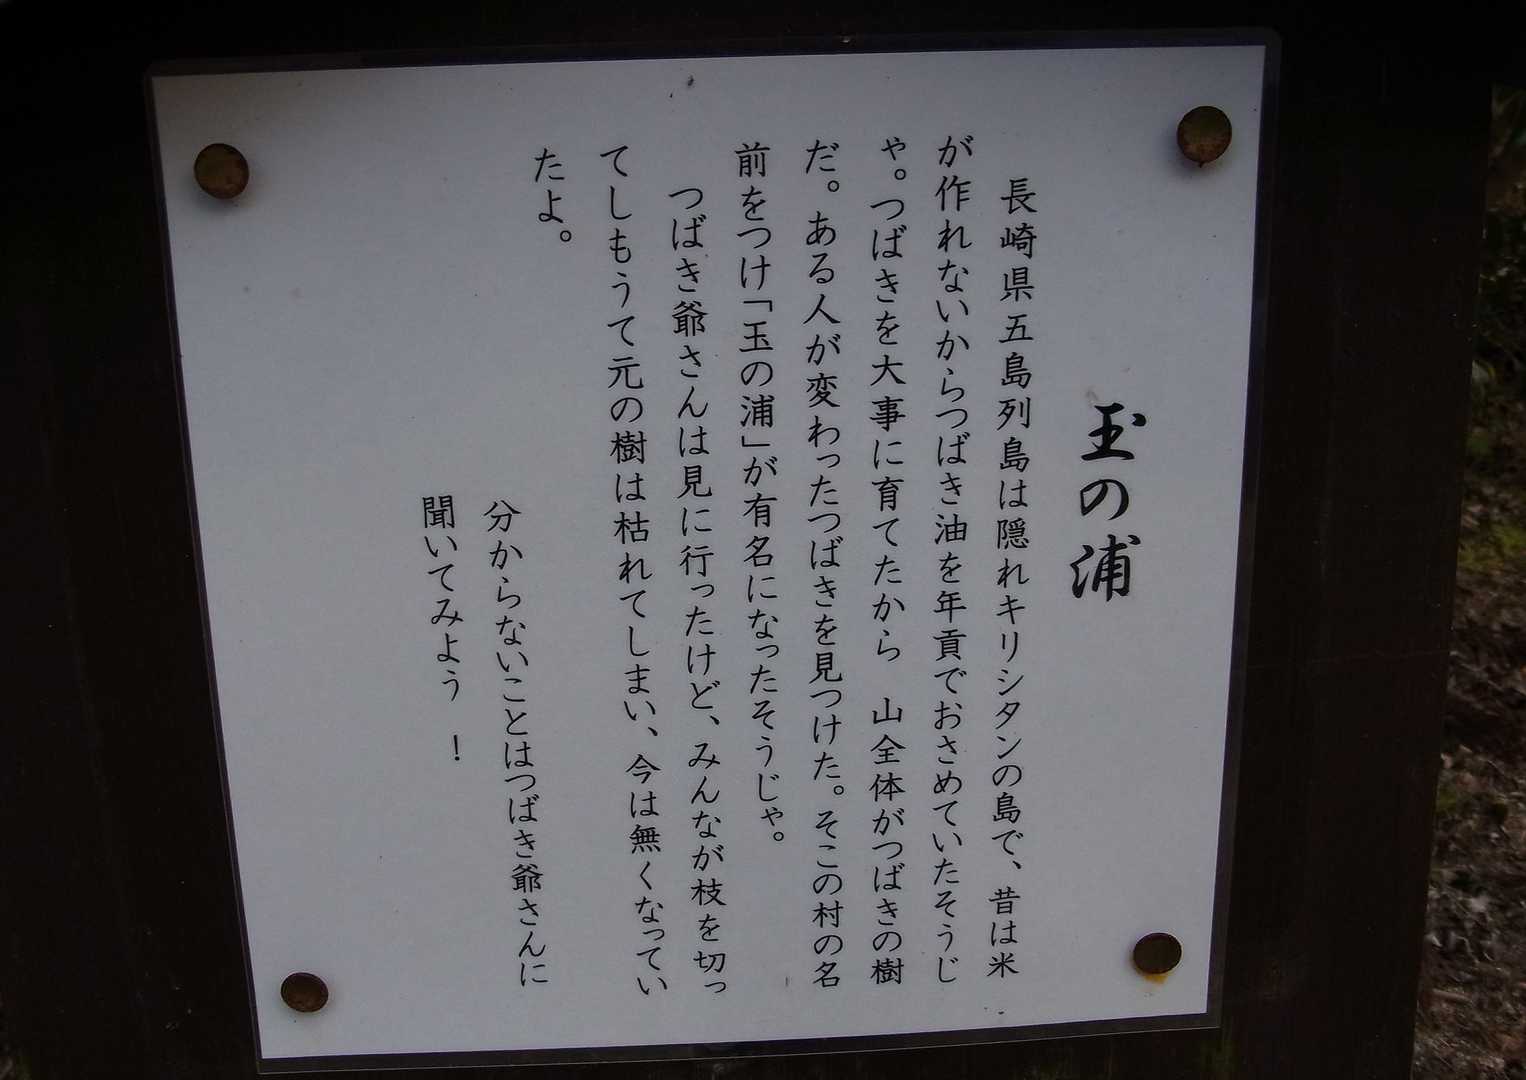 玉の浦
長崎県五島列島は隠れキリシタンの島で、昔は米
が作れないからつばき油を年貢でおさめていたそうじ
ゃ。つばきを大事に育てたから　山全体がつばきの樹
だ。ある人が変わったつばきを見つけた。そこの村の名
前をつけ「玉の浦」が有名になったそうじゃ。
つばき爺さんは見に行ったけど、みんなが枝を切っ
てしもうて元の樹は枯れてしまい、今は無くなってい
たよ。
分からないことはつばき爺さんに
聞いてみよう　！